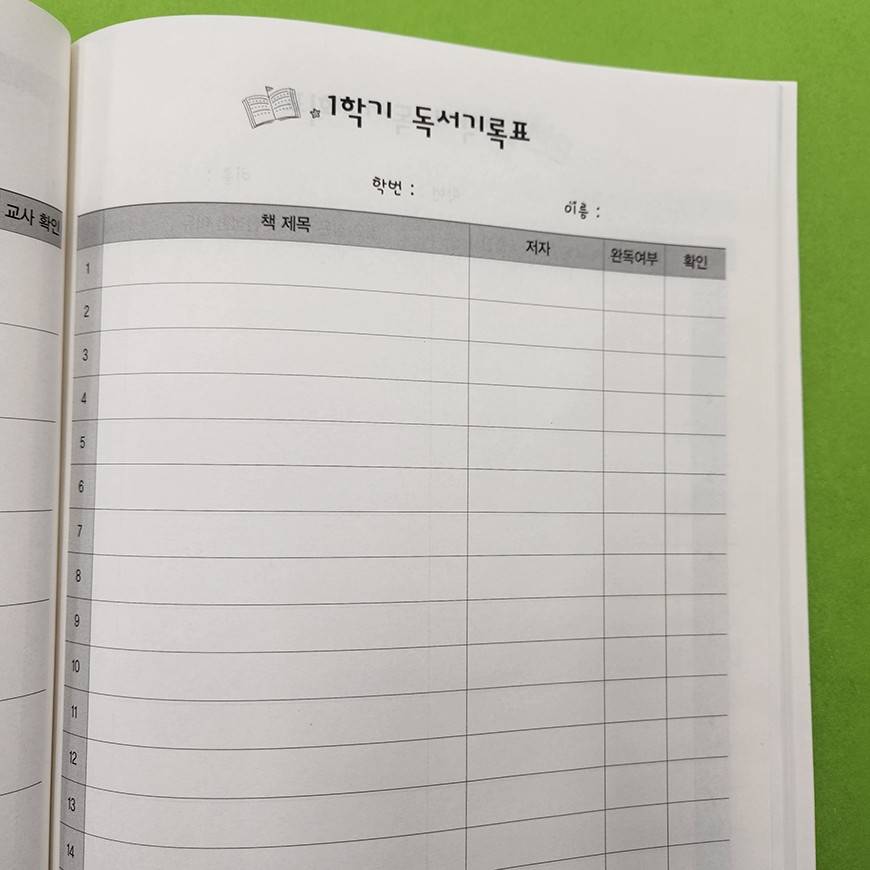 교사 확인
1학기 독서기록표
학번 :
이름 :
책 제목 저자 완독여부 확인
1
2
3
4
5
6
7
8
9
10
11
12
13
14